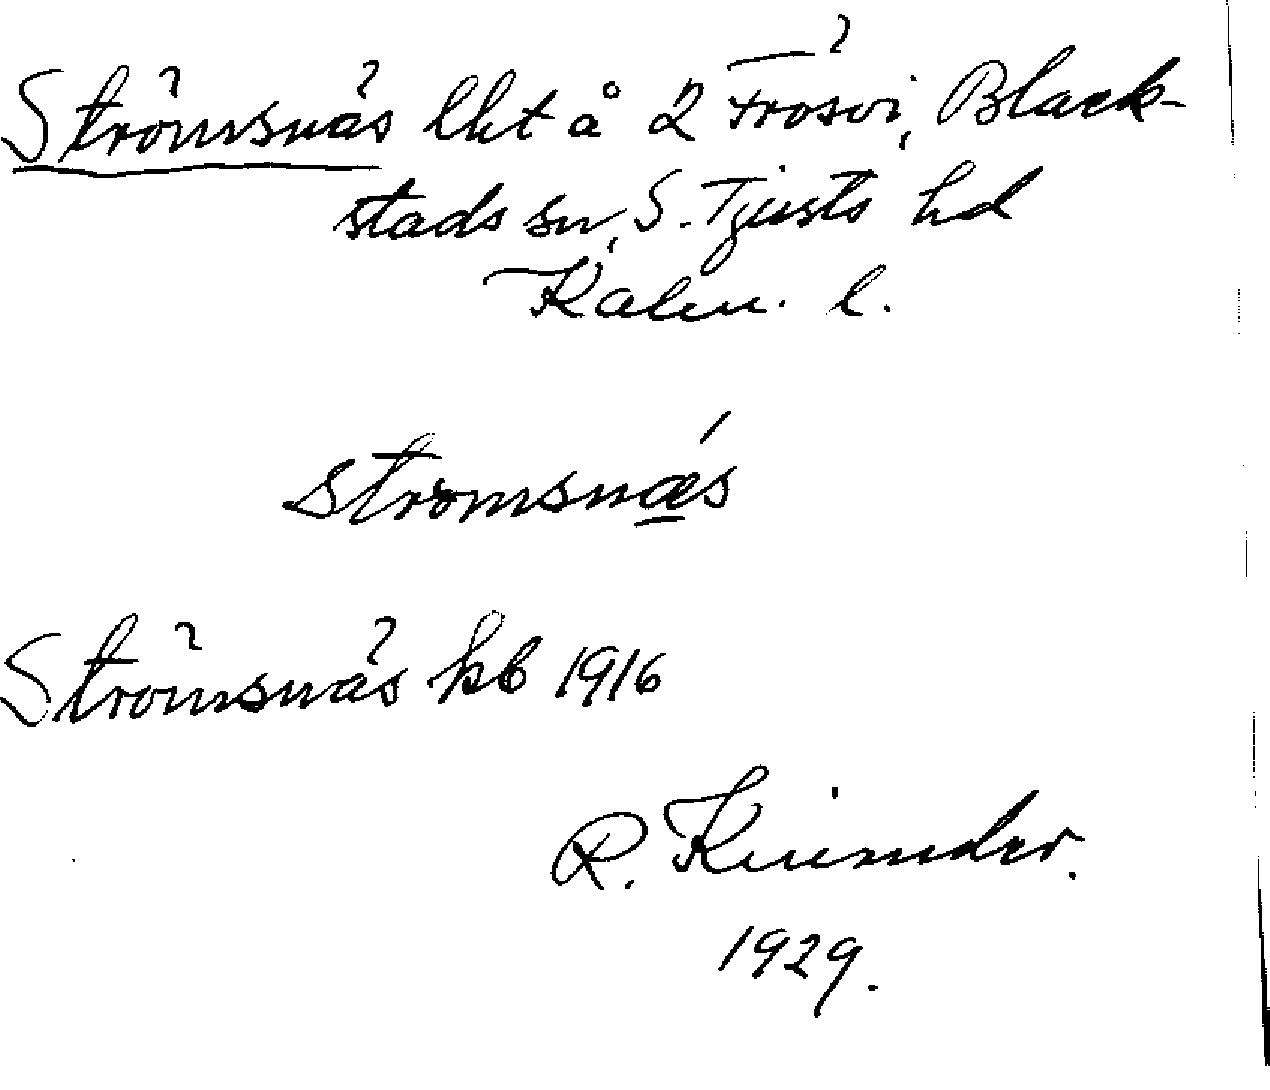 Strömsnäs lht å 2 Frösvi, Black-
stads sn, S. Tjusts hd
Kalm. l.
stromsnæ̲s
Strömsnäs kb 1916
R.
1929.